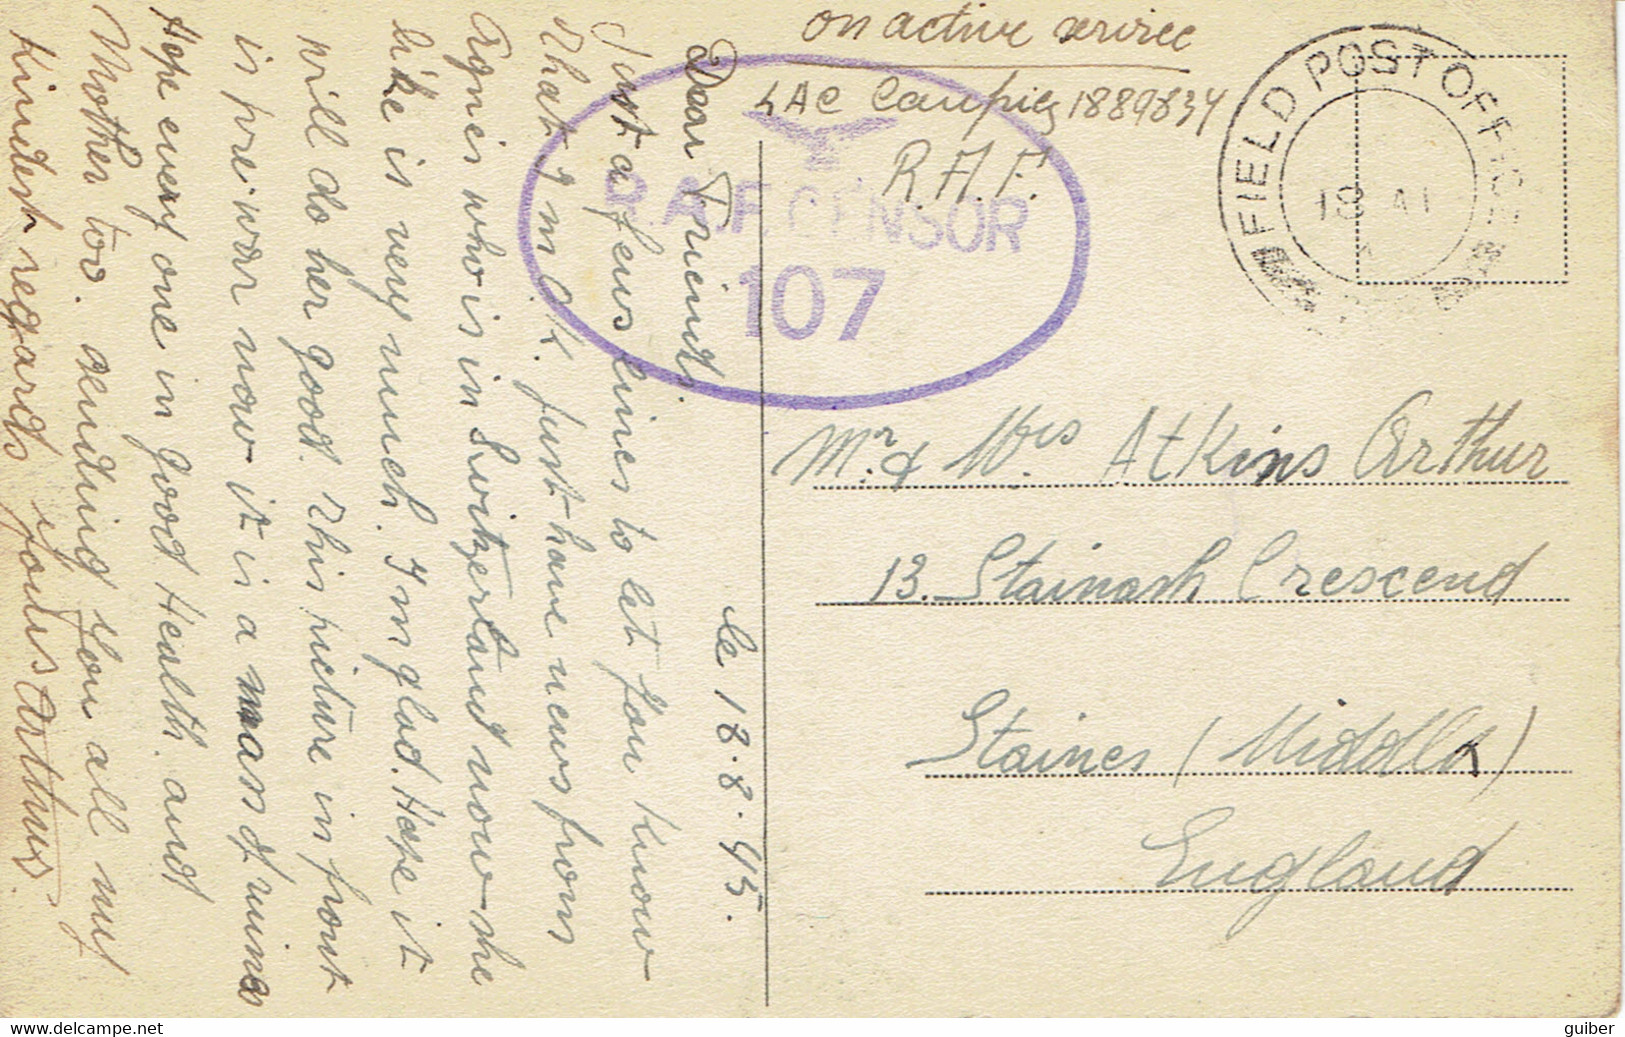 on active service
LAC Caupies 1889834
R.A.F.
FIELD POST OFFICE
18 AU
R.A.F. CENSOR
107
le 18.8.45.
Dear Friends,
Just a feus lines to let you know
that I m O.K. Just have news from
Agnes who is in Switzerland now she
like is very much. I m glad. Hope it
will do her good. This picture in front
is pre-war now it is a mass of ruines
Hope every one in good Health. and
Mother too. sending you all my
Kindest regards yours Arthur.
Mr. & Mrs Atkins Arthur
13. Stainash Crescend
Staines (Middlx)
England
delcampe.net
guiber